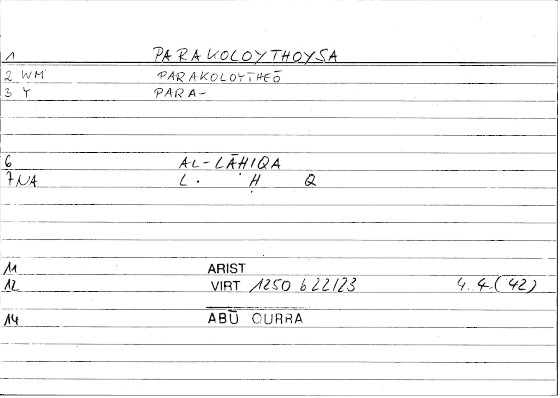 1 PARAKOLOYTHOYSA
2 WM PARAKOLOYTHEŌ
3 Y PARA-
6 AL-LĀḤIQA
7 NA L. Ḥ Q
11 ARIST
12 VIRT 1250 b 22/23 4.4 (42)
14 ABŪ QURRA